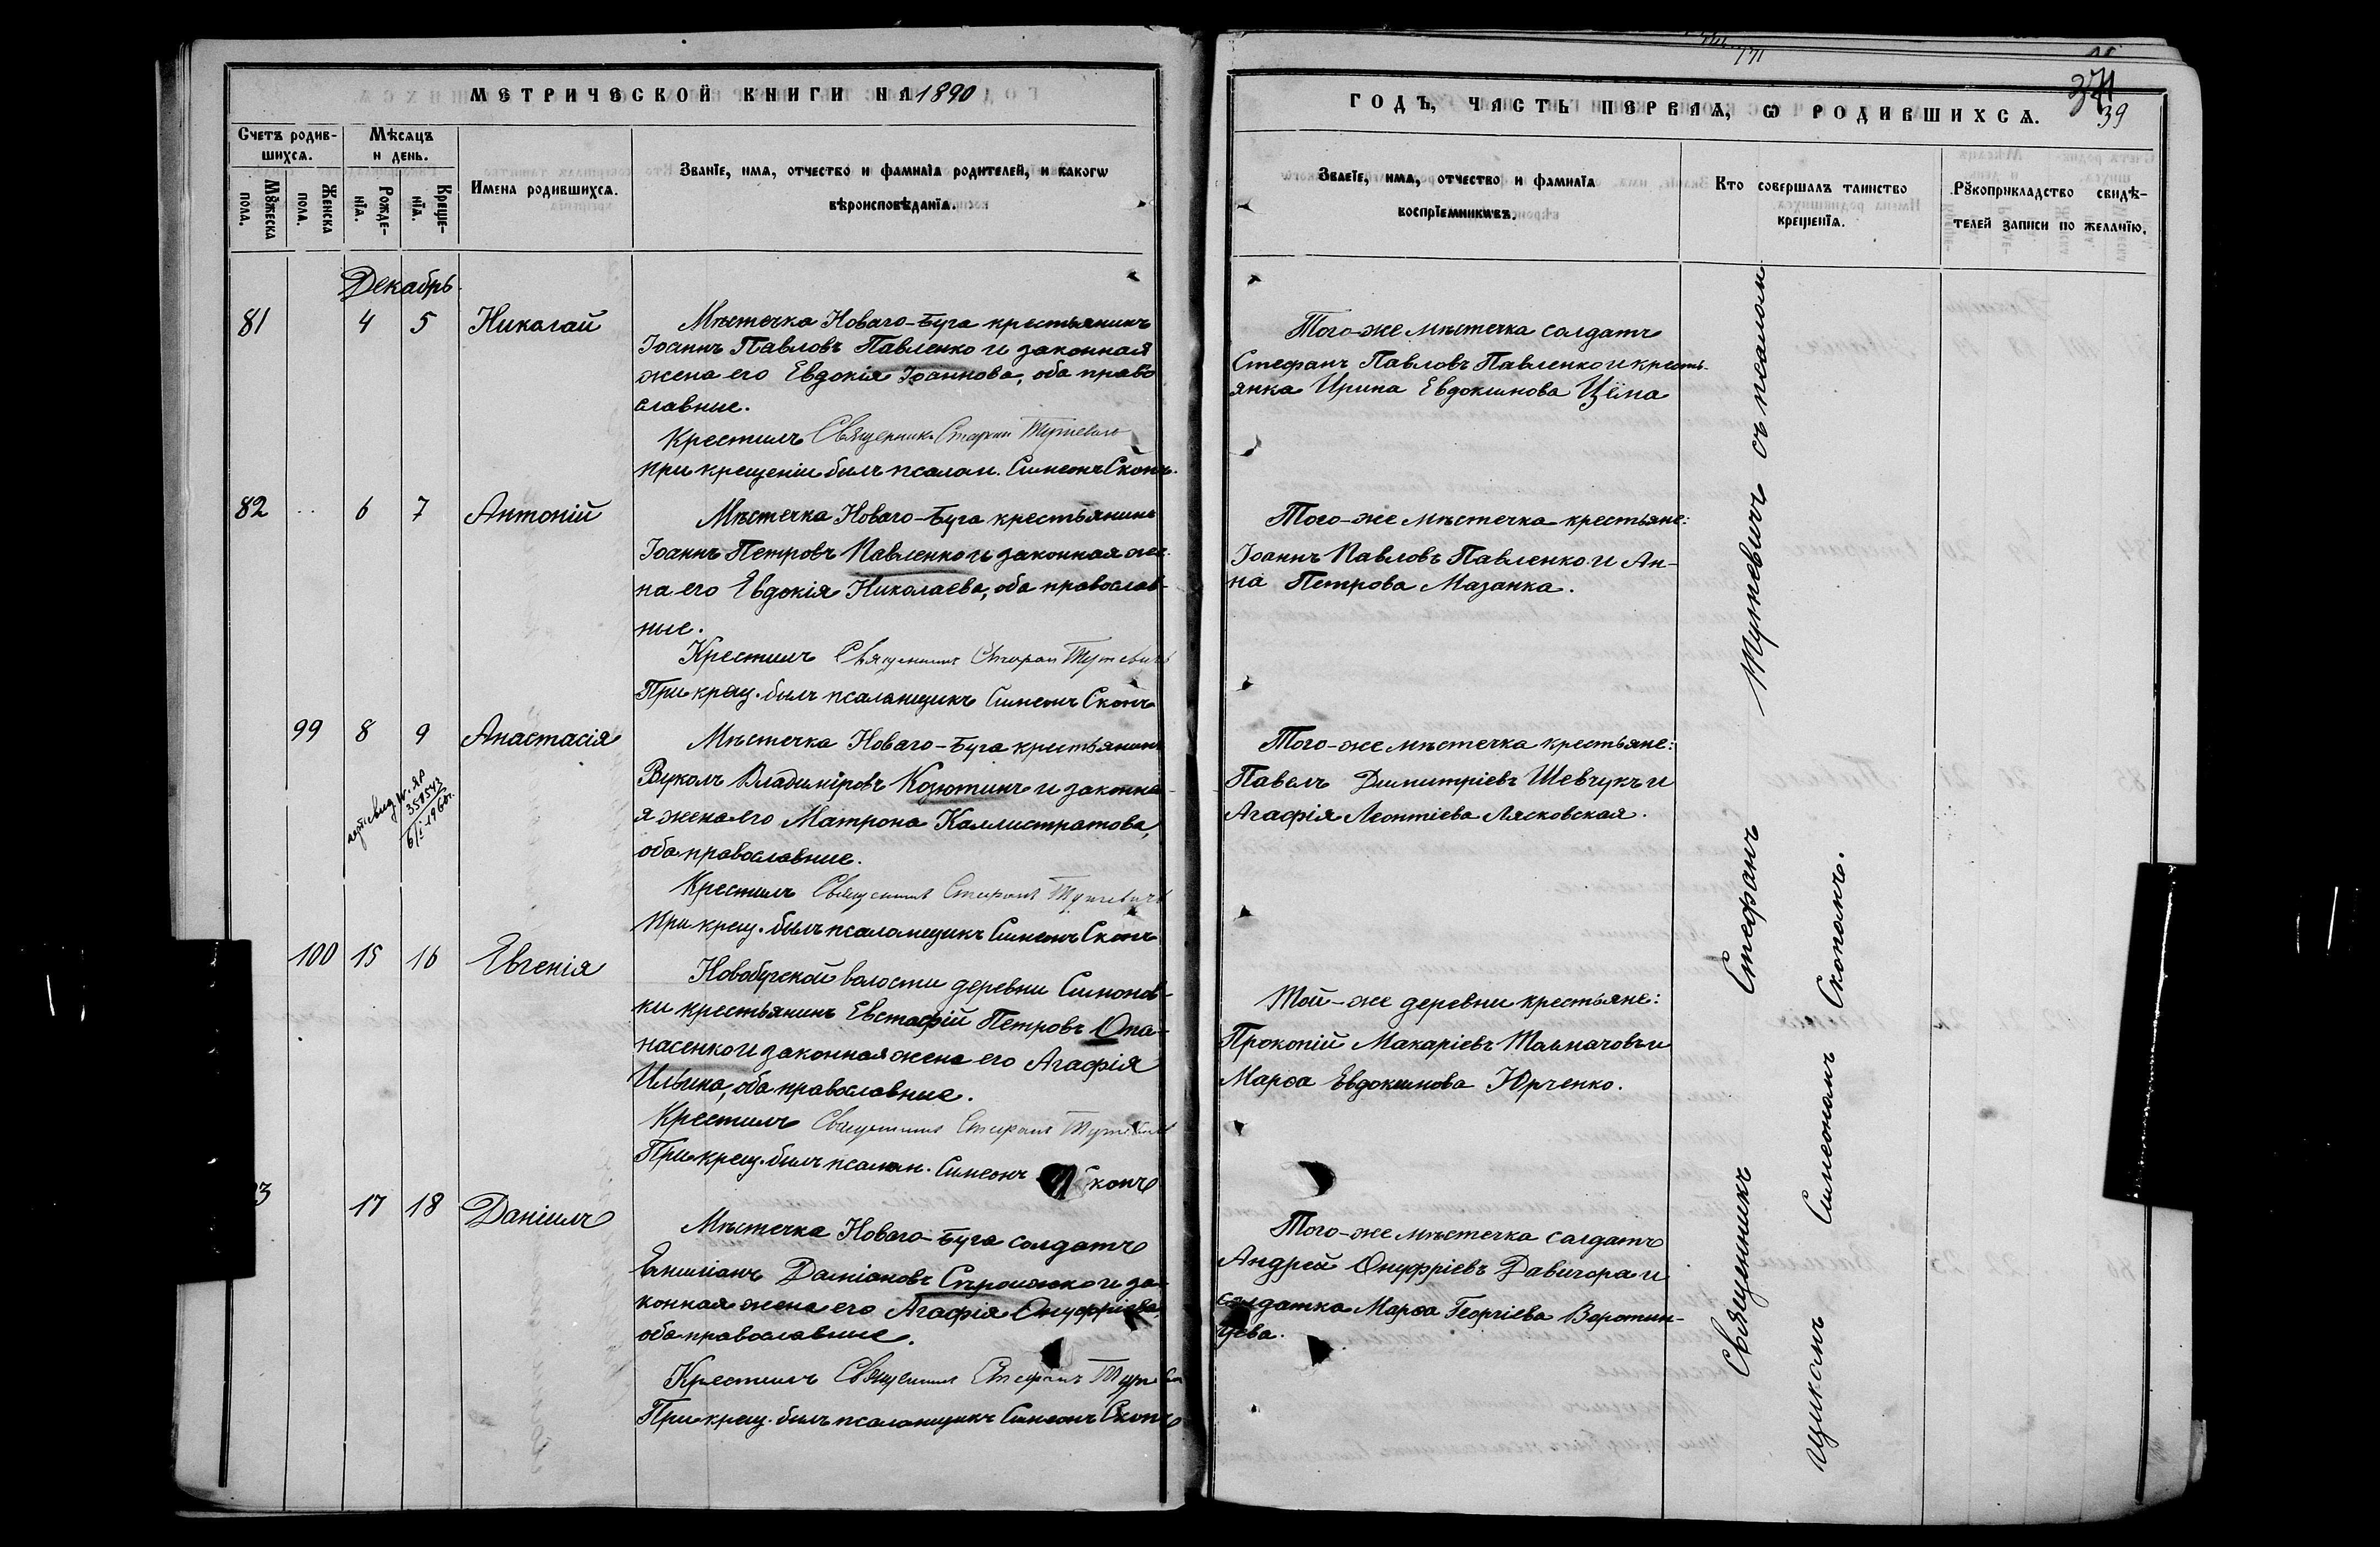 МЕТРИЧЕСКОЙ КНИГИ НА 1890
Счетъ родив-
шихся.
Мѣсяцъ
и день.
Мꙋжеска
пола.
Женска
пола.
Рожде-
нїя.
Креще-
нїя.
Имена родившихся.
Званїе, имя, отчество и фамилїя родителей, и какогѡ
вѣроисповѣданїя.
Декабрь
81 4 5 Николай
Мѣстечка Новаго-Буга крестьянинъ
Іоаннъ Павловъ Павленко и законная
жена его Евдокія Іоаннова, оба право
славные.
Крестилъ Священникъ Стефанъ Тутневичъ
при крещеніи былъ псалом. Симеонъ Скопъ.
82 6 7 Антоній
Мѣстечка Новаго-Буга крестьянинъ
Іоаннъ Петровъ Павленко и законная же-
на его Евдокія Николаева, оба православ-
ные.
Крестилъ Священникъ Стефан
При крещ. былъ псаломщикъ Симеонъ Скопъ
99 8 9 Анастасія
358543
6/I 1960г.
Мѣстечка Новаго-Буга крестьянинъ
Вуколъ Владиміровъ Козютинъ и законна
я жена его Матрона Каллистратова,
оба православные.
Крестилъ Священникъ Стефанъ
При крещ. былъ псаломщикъ Симеонъ Скопъ
100 15 16 Евгенія
Новобугской волости деревни Симонов-
ки крестьянинъ Евстафій Петровъ Опа-
насенко и законная жена его Агафія
Ильина, оба православные.
Крестилъ Священникъ Стефанъ
При крещ. былъ псалом. Симеонъ Скопъ
3 17 18 Даніилъ
Мѣстечка Новаго-Буга солдатъ
Емиліанъ Даміановъ и за-
конная жена его Агафія Онуфріева,
оба православные.
Крестилъ Священникъ Стефанъ
При крещ. былъ псаломщикъ Симеонъ Скопъ
371
39
ГОДЪ, ЧАСТЬ ПЕРВАЯ, Ѡ РОДИВШИХСЯ.
Званїе, имя, отчество и фамилїя
воспрїемникивъ.
Кто совершалъ таинство
крещенїя.
Рꙋкоприкладство свидѣ-
телей записи по желанїю.
Того-же мѣстечка солдатъ
Стефанъ Павловъ Павленко и кресть-
янка Ирина Евдокимова Цёма
Того-же мѣстечка крестьяне:
Іоаннъ Павловъ Павленко и Ан-
на Петрова Мазанка.
Того-же мѣстечка крестьяне:
Павелъ Димитріевъ Шевчукъ и
Агафія Леонтіева Лясковская.
Той-же деревни крестьяне:
Прокопій Макаріевъ Толмачовъ и
Марѳа Евдокимова Юрченко.
Того-же мѣстечка солдатъ
Андрей Онуфріевъ Давигора и
солдатка Марѳа Георгіева Воротин-
цева.
Священникъ Стефанъ Тутневичъ съ псалом
щикомъ Симеономъ Скопомъ.